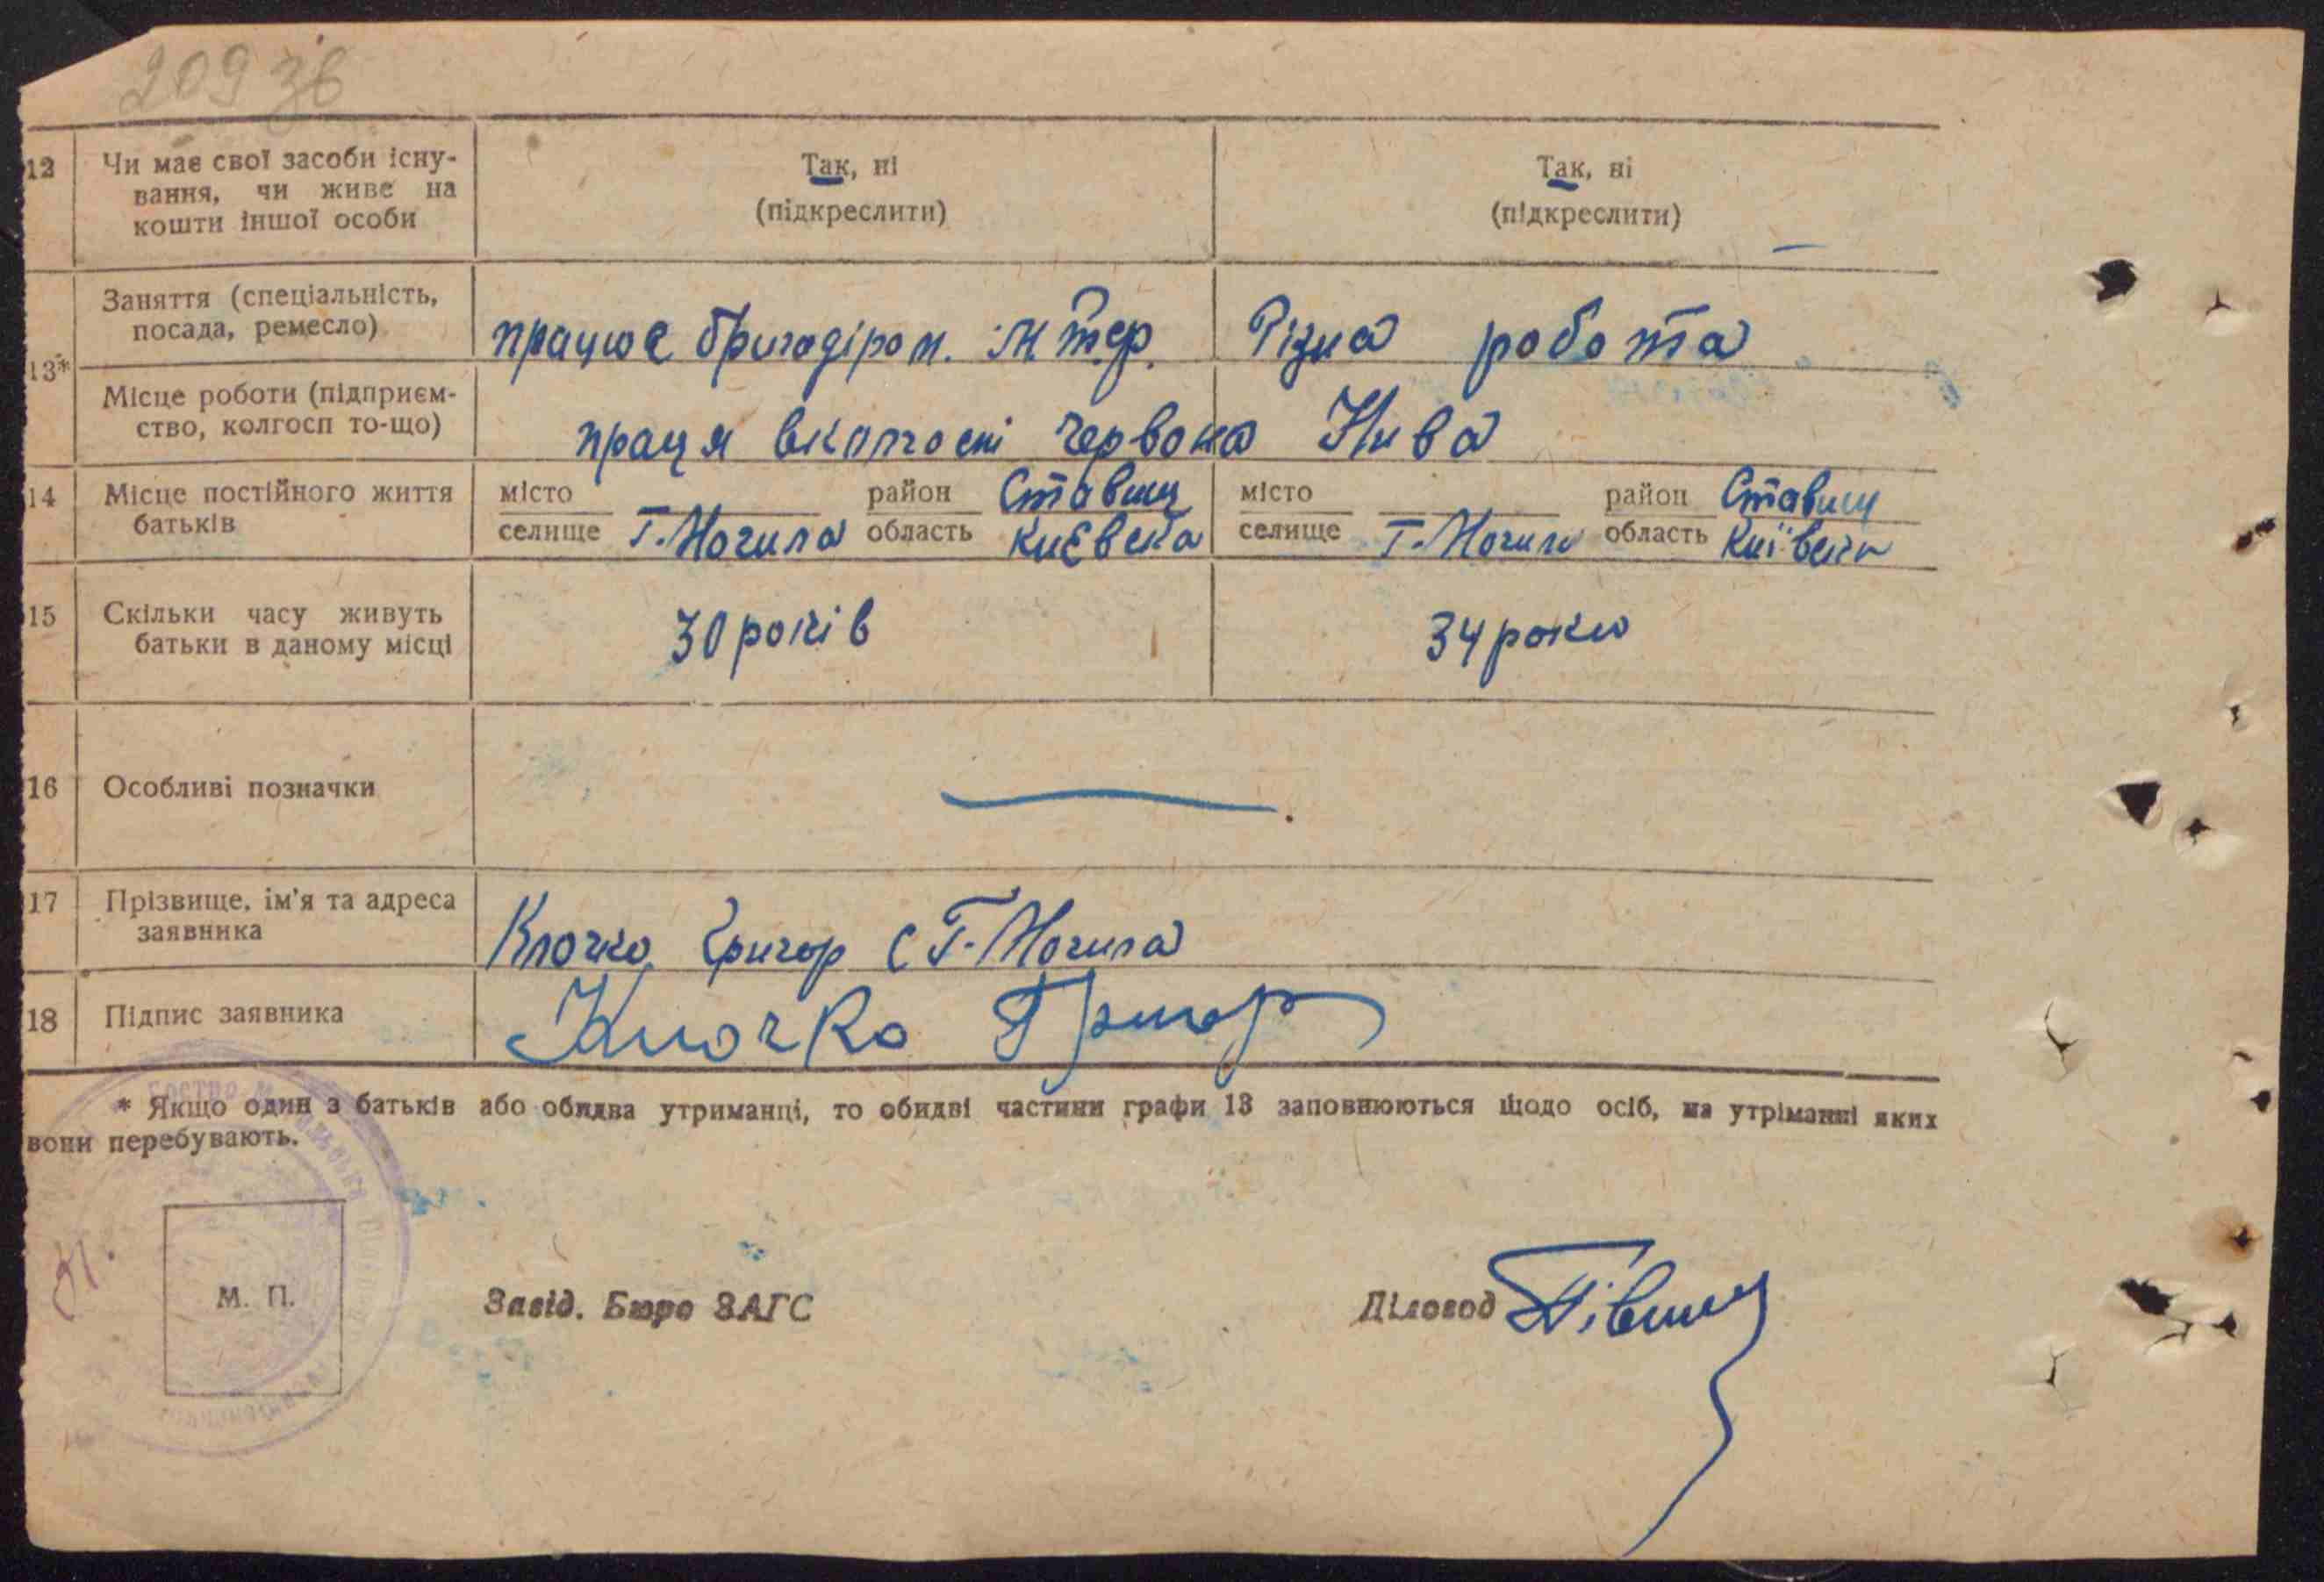 209 зв
12 Чи має свої засоби існу-
вання, чи живе на
кошти іншої особи
Так, ні
(підкреслити)
Так, ні
(підкреслити)
13*
Заняття (спеціальність,
посада, ремесло)
працює бригадіром.
Різна робота
Місце роботи (підприєм-
ство, колгосп то-що)
праця вколгоспі Червона Нива
14 Місце постійного життя
батьків
місто
селище Т.-Могила
район Ставищ
область Києвска
місто
селище Т.-Могила
район Ставищ
область Київска
15 Скільки часу живуть
батьки в даному місці
30 років
34 роки
16 Особливі позначки
17 Прізвище, ім'я та адреса
заявника
Клочко Григор с Т.-Могила
18 Підпис заявника
Клочко Григор
* Якщо один з батьків або обидва утриманці, то обидві частини графи 13 заповнюються щодо осіб, на утріманні яких
вони перебувають.
М. П.
Завід. Бюро ЗАГС
Діловод